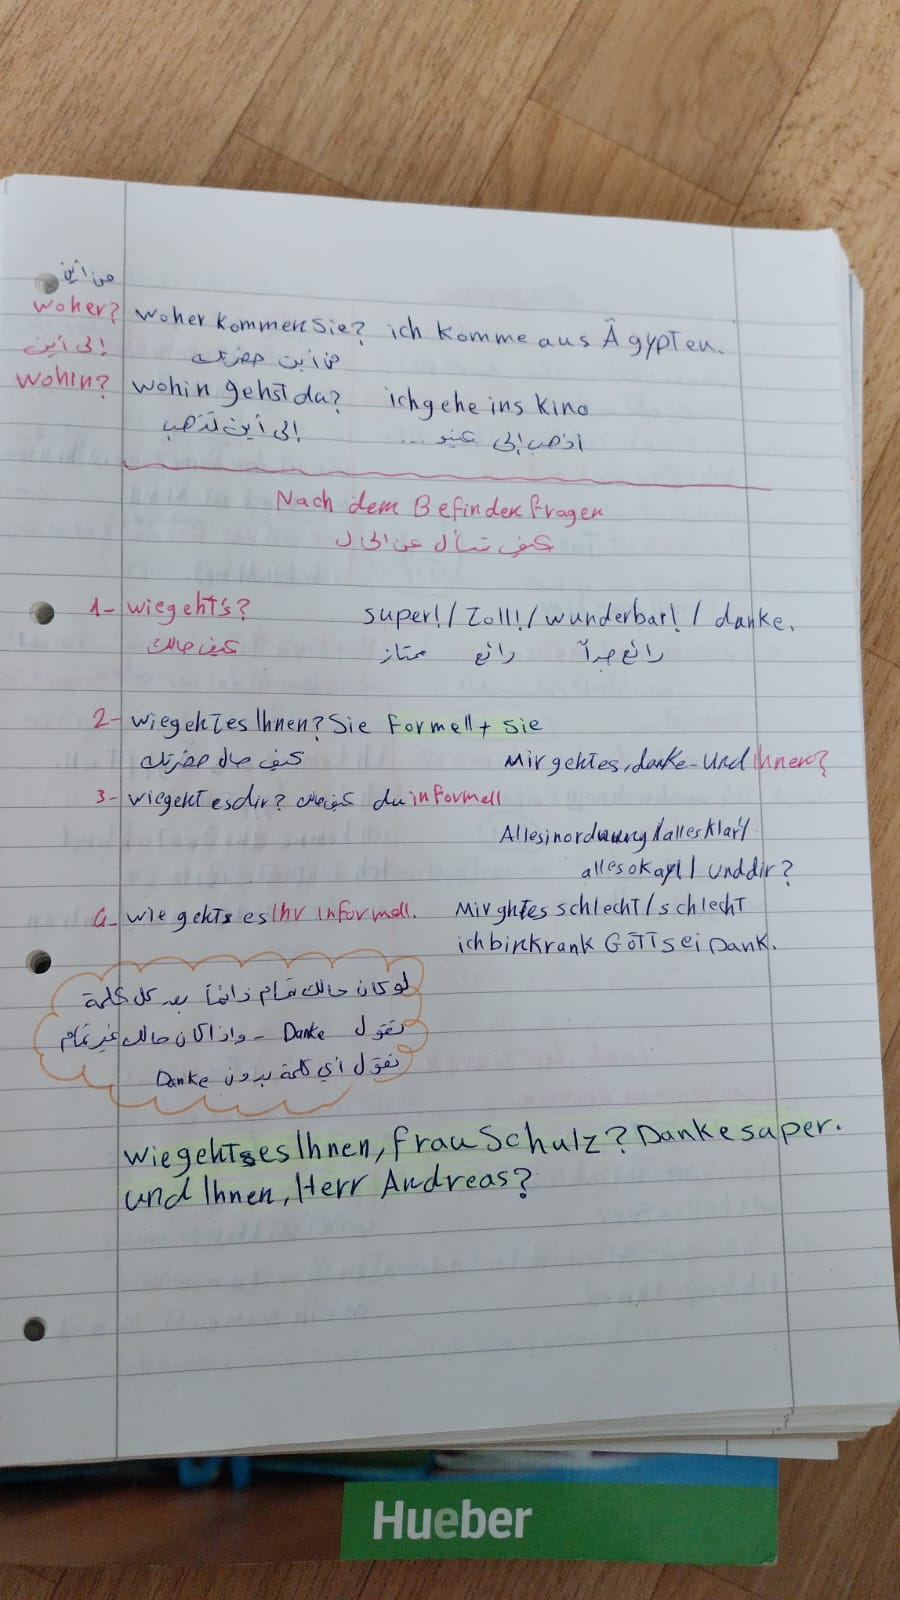 من أين
woher? woher kommen Sie? ich komme aus Ägypten.
من أين حضرتك
إلى أين
wohin? wohin gehst da? ich gehe ins Kino
إلى أين تذهب
اذهب إلى ...
Nach dem Befinden fragen
كيف تسأل عن الحال
1- wie geht's? super! / Toll! / wunderbar! / danke.
كيف حالك ممتاز رائع رائع جداً
2- wie geht es Ihnen? Sie Formell + Sie
كيف حال حضرتك
Mir geht es, danke - Und Ihnen?
3- wie geht es dir? كيف حالك du informell
Alles in ordnung / alles klar /
alles okay! / und dir?
wie gehts es Ihr informell. Mir ghtes schlecht / schlecht
ich bin krank Gott sei Dank.
لو كان حالك تمام دائماً بعد كل كلمة
نقول Danke - واذا كان حالك غير تمام
نقول أي كلمة بدون Danke
wie gehts es Ihnen, Frau Schulz? Danke super.
und Ihnen, Herr Andreas?
Hueber